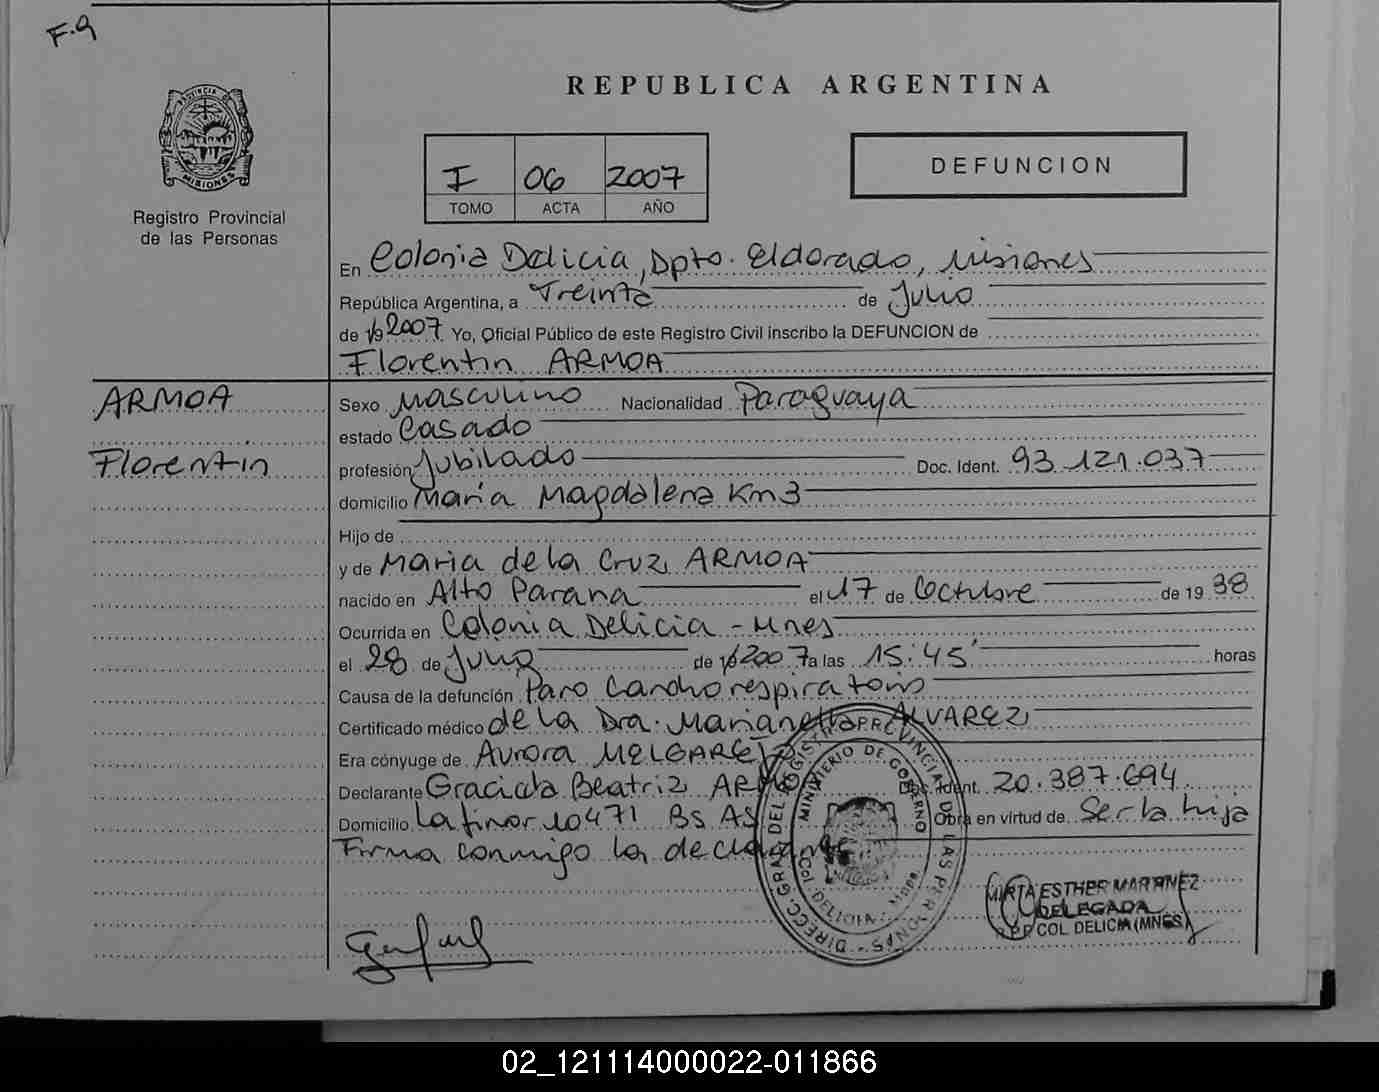 F.9
REPUBLICA ARGENTINA
PROVINCIA DE
MISIONES
Registro Provincial
de las Personas
I 06 2007
TOMO ACTA AÑO
DEFUNCION
En Colonia Delicia, Dpto. Eldorado, Misiones
República Argentina, a Treinta de Julio
de 19 2007 Yo, Oficial Público de este Registro Civil inscribo la DEFUNCION de
Florentin ARMOA
ARMOA
Florentin
Sexo Masculino Nacionalidad Paraguaya
estado Casado
profesión Jubilado Doc. Ident. 93.121.037
domicilio María Magdalena Km 3
Hijo de
y de Maria de la Cruz ARMOA
nacido en Alto Parana el 17 de Octubre de 19 38
Ocurrida en Colonia Delicia - Mnes
el 28 de Julio de 19 2007 a las 15:45' horas
Causa de la defunción Paro Cardiorespiratorio
Certificado médico de la Dra. Marianella ALVAREZ
Era cónyuge de Aurora MELGAREJO
Declarante Graciela Beatriz ARMOA Doc. Ident. 20.387.694
Domicilio Lafinor 10471 Bs As Obra en virtud de Ser la hija
Firma conmigo la declarante
DIRECC. GRAL. DEL REGISTRO PROVINCIAL DE LAS PERSONAS
MINISTERIO DE GOBIERNO
COL. DELICIA
MIRTA ESTHER MARTINEZ
DELEGADA
R.P.P. COL. DELICIA (MNES)
02_121114000022-011866